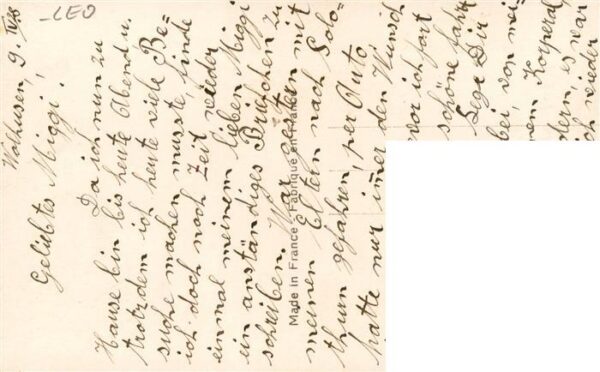 LEO
Wolhusen, 9.
Geliebtes Miggi!
Da ich nun zu
Hause bin bis heute Abend u.
trotzdem ich heute viele Be=
suche machen musste, finde
ich doch noch Zeit wieder
einmal meinem lieben Miggi
ein anständiges Briefchen zu
schreiben. War gestern mit
meinen Eltern nach Solo=
thurn gefahren, per Auto
hatte nur im̅er den Wunsch
evor ich fort
schöne fahr
Lege Dir
bei, von mei=
nem Korporal,
dern, es war
ich wieder
Made in France - Fabriqué en France